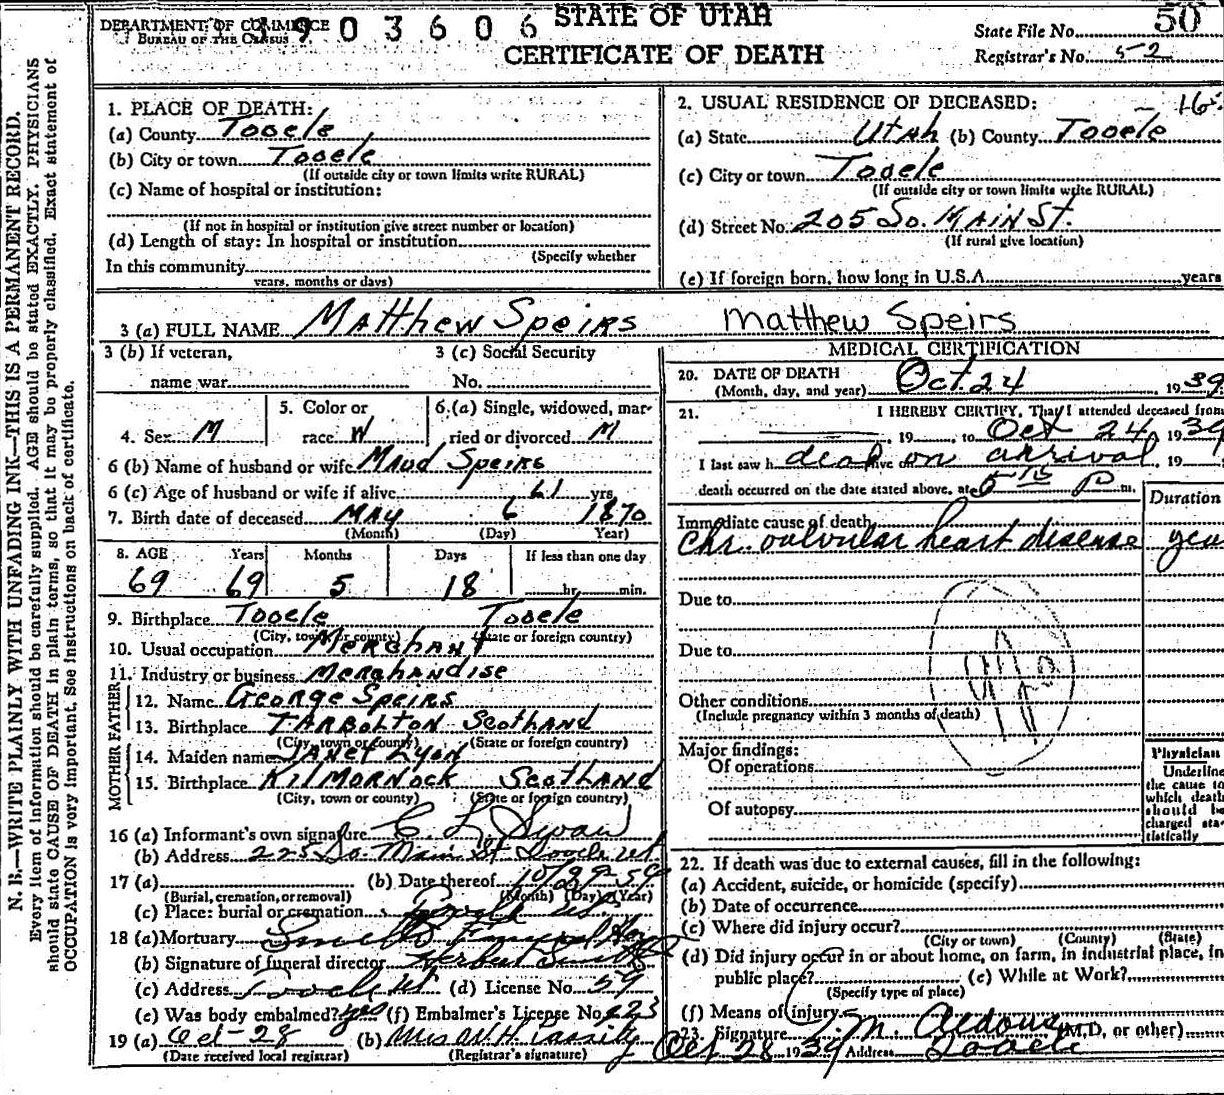 DEPARTMENT OF COMMERCE
BUREAU OF THE CENSUS
3903606
STATE OF UTAH
CERTIFICATE OF DEATH
State File No. 50
Registrar's No. 52
N. B.—WRITE PLAINLY WITH UNFADING INK—THIS IS A PERMANENT RECORD.
Every item of information should be carefully supplied. AGE should be stated EXACTLY. PHYSICIANS
should state CAUSE OF DEATH in plain terms, so that it may be properly classified. Exact statement of
OCCUPATION is very important. See instructions on back of certificate.
1. PLACE OF DEATH:
(a) County Tooele
(b) City or town Tooele
(If outside city or town limits write RURAL)
(c) Name of hospital or institution:
(If not in hospital or institution give street number or location)
(d) Length of stay: In hospital or institution
(Specify whether
In this community
years, months or days)
2. USUAL RESIDENCE OF DECEASED:
(a) State Utah (b) County Tooele
(c) City or town Tooele
(If outside city or town limits write RURAL)
(d) Street No. 205 So. Main St.
(If rural give location)
(e) If foreign born, how long in U.S.A. years
3 (a) FULL NAME Matthew Speirs Matthew Speirs
3 (b) If veteran,
name war
3 (c) Social Security
No.
4. Sex M
5. Color or
race W
6. (a) Single, widowed, mar-
ried or divorced M
6 (b) Name of husband or wife Maud Speirs
6 (c) Age of husband or wife if alive 61 yrs.
7. Birth date of deceased May 6 1870
(Month) (Day) Year)
8. AGE Years Months Days If less than one day
69 69 5 18 hr. min.
9. Birthplace Tooele Tooele
(City, town or county) (State or foreign country)
10. Usual occupation Merchant
11. Industry or business Merchandise
FATHER
12. Name George Speirs
13. Birthplace Tarbolton Scotland
(City, town or county) (State or foreign country)
MOTHER
14. Maiden name Janet Lyon
15. Birthplace Kilmornock Scotland
(City, town or county) (State or foreign country)
16 (a) Informant's own signature C L Swan
(b) Address 225 So. Main St Tooele Ut
17 (a) (b) Date thereof
(Burial, cremation, or removal) (Month) (Day) (Year)
(c) Place: burial or cremation Tooele Ut
18 (a) Mortuary Funeral
(b) Signature of funeral director Herbert
(c) Address Tooele Ut (d) License No. 59
(e) Was body embalmed? yes (f) Embalmer's License No. 223
19 (a) Oct-28 (b) Mrs W H Cassity
(Date received local registrar) (Registrar's signature)
MEDICAL CERTIFICATION
20. DATE OF DEATH
(Month, day, and year) Oct. 24 1939
21. I HEREBY CERTIFY, That I attended deceased from
19 , to Oct 24, 1939
I last saw h dead alive on on arrival, 19
death occurred on the date stated above, at 5 15 P m.
Duration
Immediate cause of death
Chr. valvular heart disease
Due to
Due to
Other conditions
(Include pregnancy within 3 months of death)
Major findings:
Of operations
Of autopsy
Physician
Underline
the cause to
which death
should be
charged sta-
tistically
22. If death was due to external causes, fill in the following:
(a) Accident, suicide, or homicide (specify)
(b) Date of occurrence
(c) Where did injury occur?
(City or town) (County) (State)
(d) Did injury occur in or about home, on farm, in industrial place, in
public place? (e) While at Work?
(Specify type of place)
(f) Means of injury
23. Signature J. M. Aldous (M.D. or other)
Oct 28 1939 Address Tooele